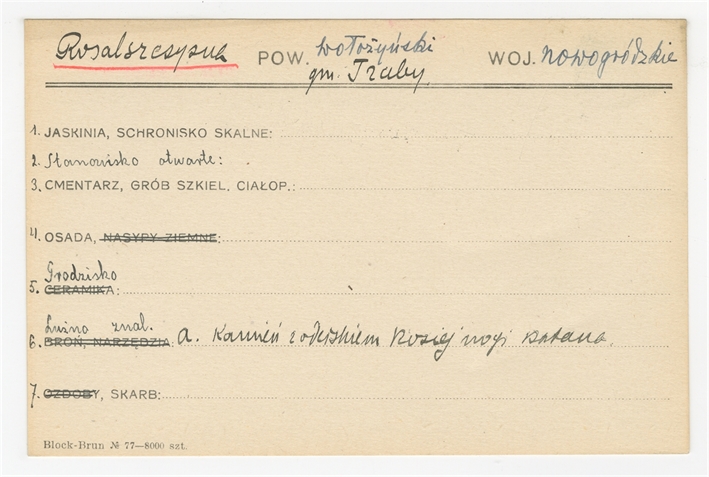 POW. wołożyński WOJ. nowogródzkie
gm. Traby.
1. JASKINIA, SCHRONISKO SKALNE:
2. Stanowisko otwarte:
3. CMENTARZ, GRÓB SZKIEL. CIAŁOP.:
4. OSADA, NASYPY ZIEMNE:
Grodzisko
5. CERAMIKA:
Luźno znal.
6. BROŃ, NARZĘDZIA: a. Kamień z odciskiem Kosiej nogi
7. OZDOBY, SKARB:
Block-Brun № 77—8000 szt.